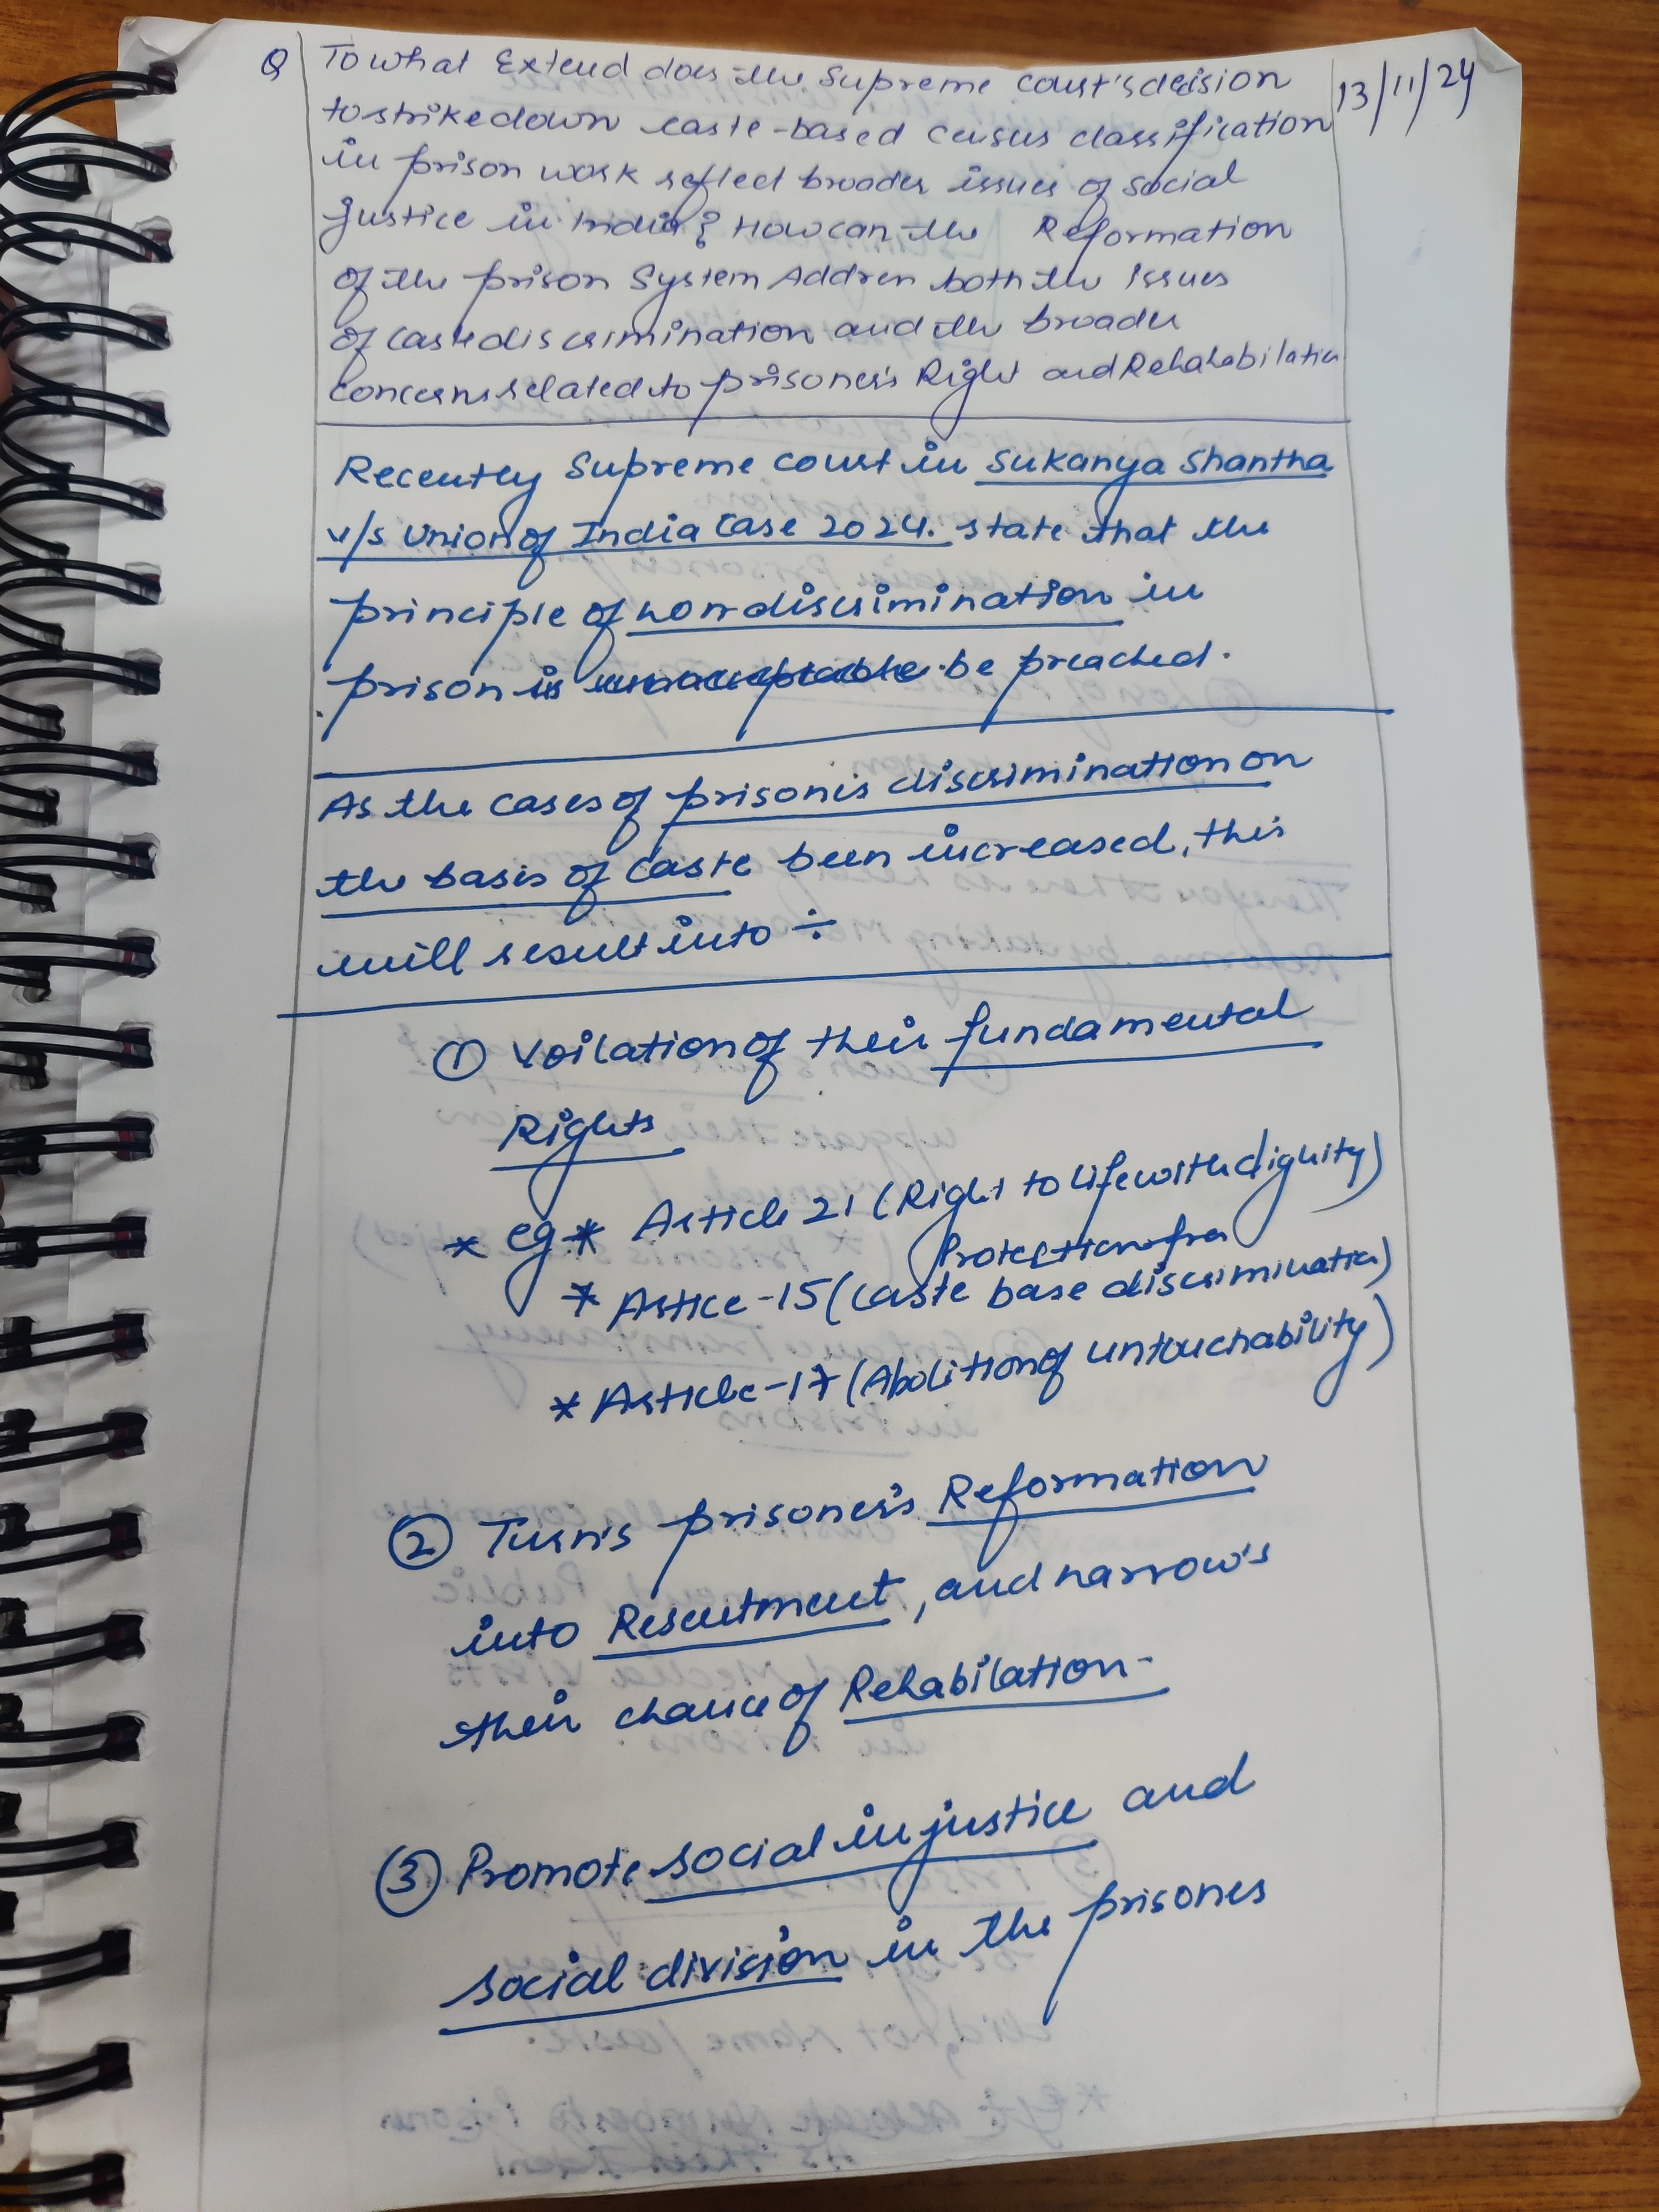 Q To what Extend does the Supreme Court's decision 13/11/24
to strike down caste-based census classification
in prison work reflect broader issues of social
justice in India? How can the Reformation
of the prison System Address both the issues
of caste discrimination and the broader
concerns related to prisoner's Right and Rehahabilation
Recently Supreme court in Sukanya Shantha
v/s Union of India Case 2024. state that the
principle of non discrimination in
prison be preached.
As the cases of prison's discrimination on
the basis of Caste been increased, this
will result into ÷
① Voilation of their fundamental
Rights
* eg * Article 21 (Right to life with dignity)
Protection from
* Artice-15 (caste base discrimination)
* Article-17 (Abolition of untouchability)
② Turn's prisoner's Reformation
into Resentment, and narrow's
their chance of Rehabilation-
③ Promote social injustice and
social division in the prisones